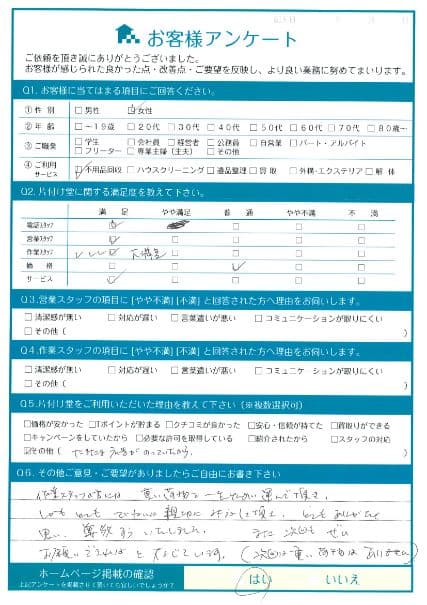 記入日
お客様アンケート
ご依頼を頂き誠にありがとうございました。
お客様が感じられた良かった点・改善点・ご要望を反映し、より良い業務に努めてまいります。
Q1. お客様に当てはまる項目にご回答ください。
① 性 別 □男性 □女性
② 年 齢 □～19歳 □20代 □30代 □40代 □50代 □60代 □70代 □80歳～
③ ご職業 □学生 □会社員 □経営者 □公務員 □自営業 □パート・アルバイト
□フリーター □専業主婦（主夫） □その他
④ ご利用サービス □不用品回収 □ハウスクリーニング □遺品整理 □買 取 □外構・エクステリア □解 体
Q2. 片付け堂に関する満足度を教えて下さい。
満 足 やや満足 普 通 やや不満 不 満
電話スタッフ □ □ □ □
営業スタッフ □ □ □ □ □
作業スタッフ □ 大満足 □ □ □
価 格 □ □ □ □ □
サービス □ □ □ □ □
Q3.営業スタッフの項目に [やや不満] [不満] と回答された方へ理由をお伺いします。
□清潔感が無い □対応が遅い □言葉遣いが悪い □コミュニケーションが取りにくい
□その他（ ）
Q4.作業スタッフの項目に [やや不満] [不満] と回答された方へ理由をお伺いします。
□清潔感が無い □対応が遅い □言葉遣いが悪い □コミュニケーションが取りにくい
□その他（ ）
Q5.片付け堂をご利用いただいた理由を教えて下さい（※複数選択可）
□価格が安かった □Tポイントが貯まる □クチコミが良かった □安心・信頼が持てた □買取りができる
□キャンペーンをしていたから □必要な許可を取得している □紹介されたから □スタッフの対応
□その他（ のっていたから ）
Q6. その他ご意見・ご要望がありましたらご自由にお書き下さい
作業スタッフの方には 重い荷物を 運んで頂き、
しかも とても ていねいに親切に 頂き、とても ありがたく
思い、感謝 いたしました。 また 次回も ぜひ
お願い できればと 存じています。（次回は重い荷物は ありません）
ホームページ掲載の確認
上記アンケートを掲載させて頂いても宜しいでしょうか？
はい いいえ